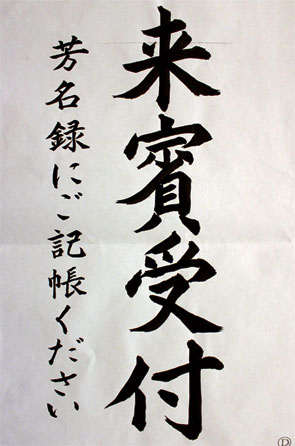 来賓受付
芳名録にご記帳ください
Ⓓ